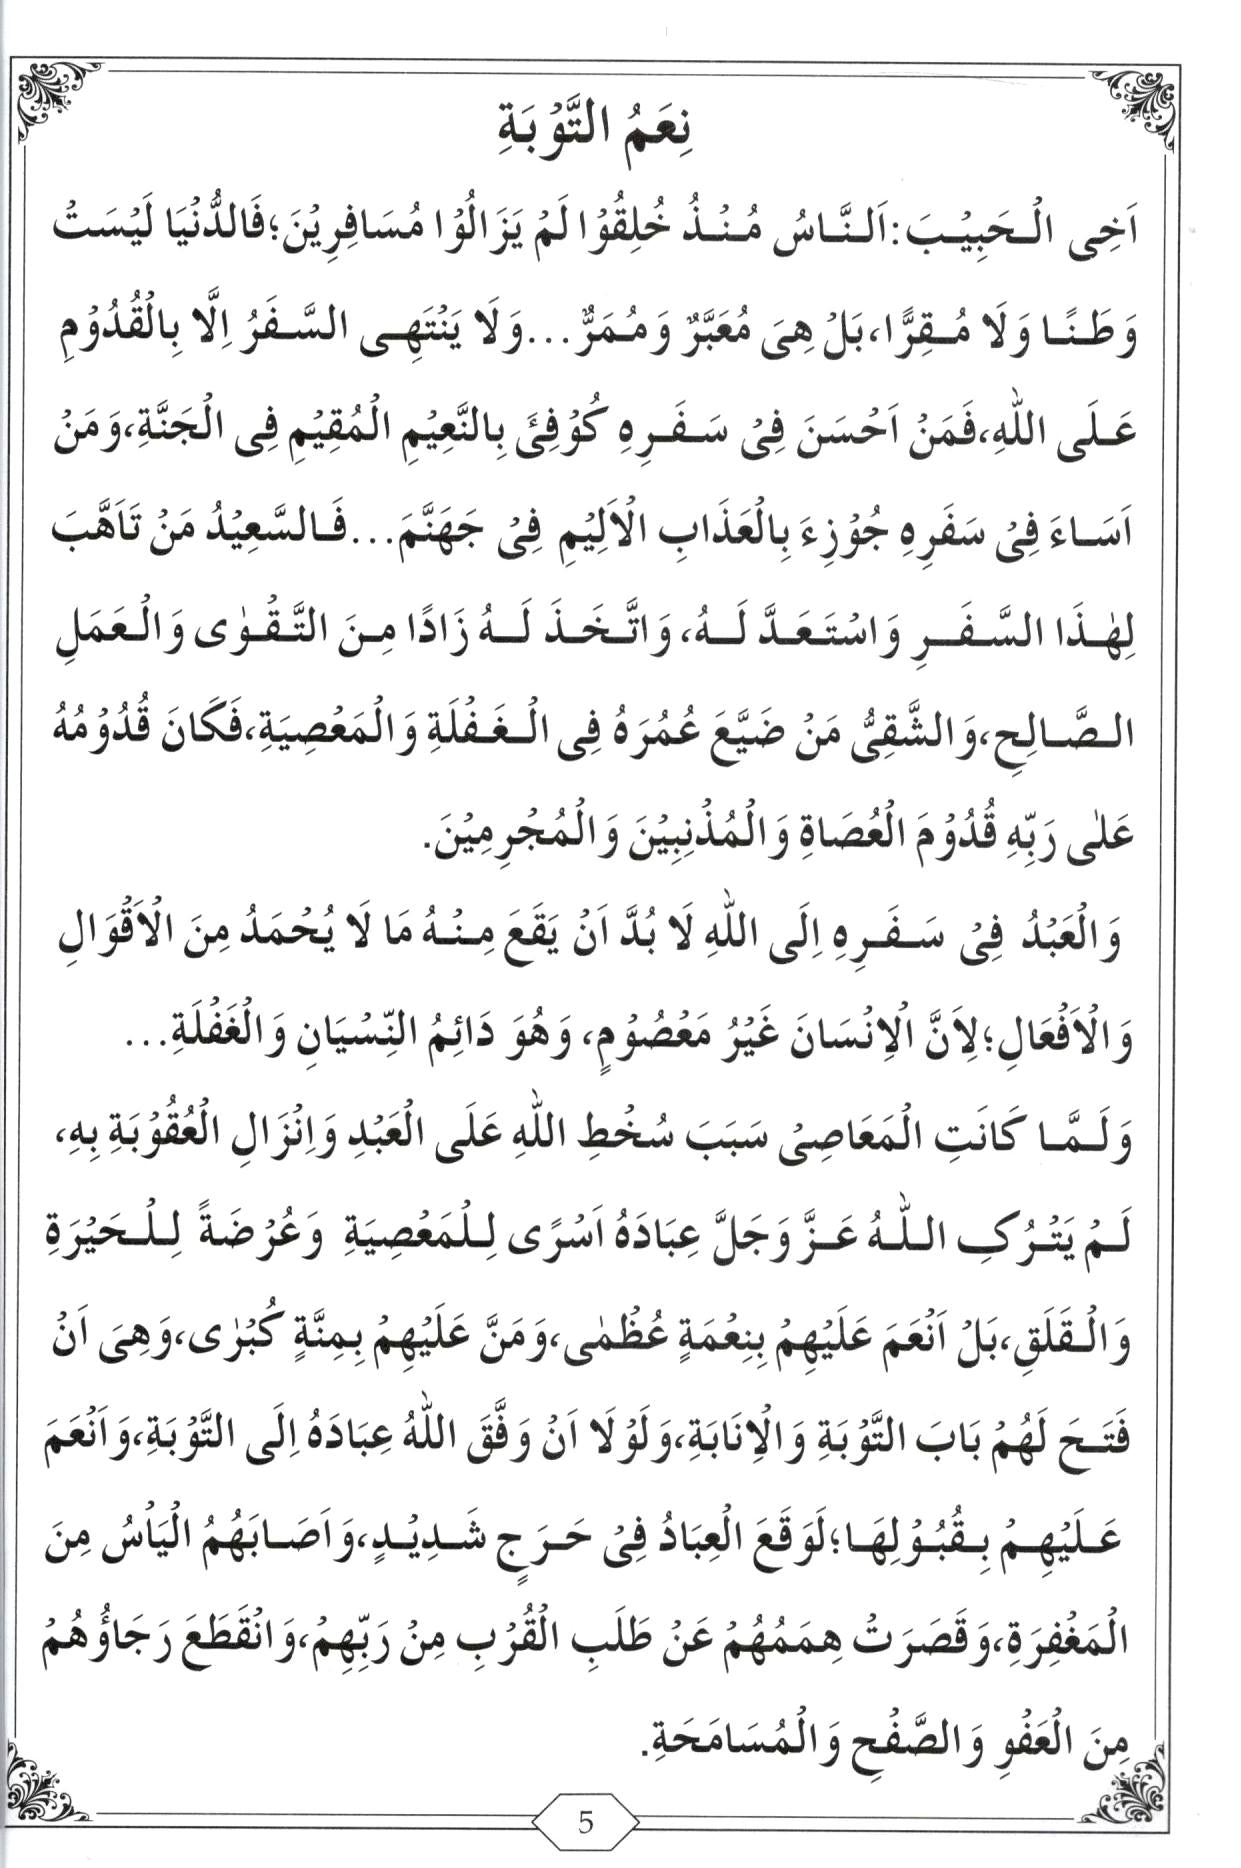 نِعَمُ التَّوْبَةِ
اَخِى الْحَبِيْبَ:اَلنَّاسُ مُنْذُ خُلِقُوْا لَمْ يَزَالُوْا مُسَافِرِيْنَ؛فَالدُّنْيَا لَيْسَتْ
وَطَنًا وَلَا مُقِرًّا،بَلْ هِىَ مُعَبَّرٌ وَمُمَرٌّ...وَلَا يَنْتَهِى السَّفَرُ اِلَّا بِالْقُدُوْمِ
عَلَى اللّٰهِ،فَمَنْ اَحْسَنَ فِىْ سَفَرِهِ كُوْفِئَ بِالنَّعِيْمِ الْمُقِيْمِ فِى الْجَنَّةِ،وَمَنْ
اَسَاءَ فِىْ سَفَرِهِ جُوْزِءَ بِالْعَذَابِ الْاَلِيْمِ فِىْ جَهَنَّمَ...فَالسَّعِيْدُ مَنْ تَاَهَّبَ
لِهٰذَا السَّفَرِ وَاسْتَعَدَّ لَهُ، وَاتَّخَذَ لَهُ زَادًا مِنَ التَّقْوٰى وَالْعَمَلِ
الصَّالِحِ،وَالشَّقِىُّ مَنْ ضَيَّعَ عُمُرَهُ فِى الْغَفْلَةِ وَالْمَعْصِيَةِ،فَكَانَ قُدُوْمُهُ
عَلٰى رَبِّهِ قُدُوْمَ الْعُصَاةِ وَالْمُذْنِبِيْنَ وَالْمُجْرِمِيْنَ.
وَالْعَبْدُ فِىْ سَفَرِهِ اِلَى اللّٰهِ لَا بُدَّ اَنْ يَقَعَ مِنْهُ مَا لَا يُحْمَدُ مِنَ الْاَقْوَالِ
وَالْاَفْعَالِ؛لِاَنَّ الْاِنْسَانَ غَيْرُ مَعْصُوْمٍ، وَهُوَ دَائِمُ النِّسْيَانِ وَالْغَفْلَةِ...
وَلَمَّا كَانَتِ الْمَعَاصِىْ سَبَبَ سُخْطِ اللّٰهِ عَلَى الْعَبْدِ وَاِنْزَالِ الْعُقُوْبَةِ بِهِ،
لَمْ يَتْرُكِ اللّٰهُ عَزَّ وَجَلَّ عِبَادَهُ اَسْرًى لِلْمَعْصِيَةِ وَعُرْضَةً لِلْحَيْرَةِ
وَالْقَلَقِ،بَلْ اَنْعَمَ عَلَيْهِمْ بِنِعْمَةٍ عُظْمٰى،وَمَنَّ عَلَيْهِمْ بِمِنَّةٍ كُبْرٰى،وَهِىَ اَنْ
فَتَحَ لَهُمْ بَابَ التَّوْبَةِ وَالْاِنَابَةِ،وَلَوْلَا اَنْ وَفَّقَ اللّٰهُ عِبَادَهُ اِلَى التَّوْبَةِ،وَاَنْعَمَ
عَلَيْهِمْ بِقُبُوْلِهَا؛لَوَقَعَ الْعِبَادُ فِىْ حَرَجٍ شَدِيْدٍ،وَاَصَابَهُمُ الْيَاْسُ مِنَ
الْمَغْفِرَةِ،وَقَصَرَتْ هِمَمُهُمْ عَنْ طَلَبِ الْقُرْبِ مِنْ رَبِّهِمْ،وَانْقَطَعَ رَجَاؤُهُمْ
مِنَ الْعَفْوِ وَالصَّفْحِ وَالْمُسَامَحَةِ.
5